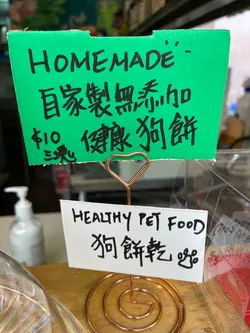 HOMEMADE
自家製無添加
$10 健康狗餅
HEALTHY PET FOOD
狗餅乾